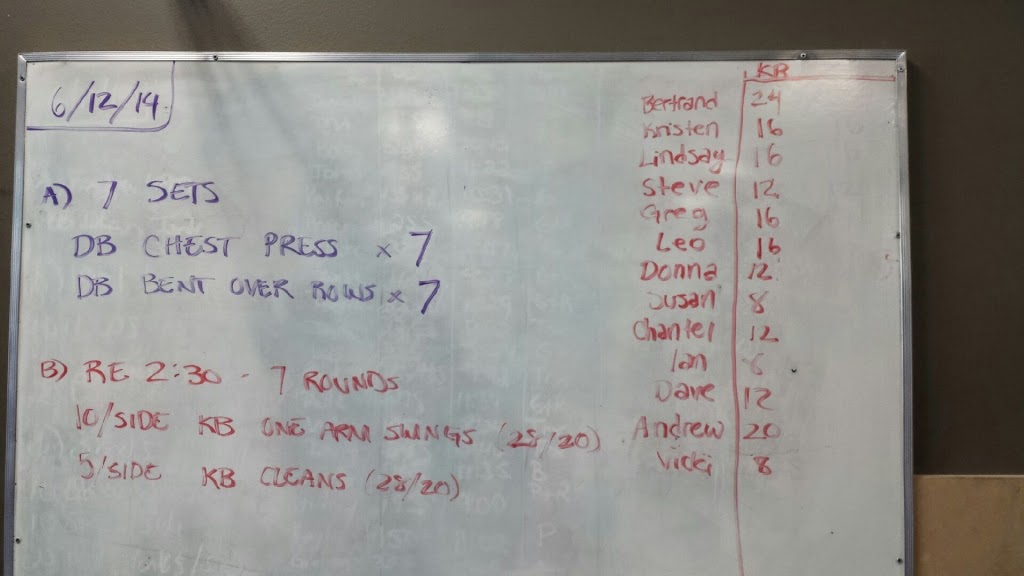 6/12/14
A) 7 SETS
DB CHEST PRESS x 7
DB BENT OVER ROWS x 7
B) RE 2:30 - 7 ROUNDS
10/SIDE KB ONE ARM SWINGS (28/20)
5/SIDE KB CLEANS (28/20)
KB
Bertrand 24
Kristen 16
Lindsay 16
Steve 12
Greg 16
Leo 16
Donna 12
Susan 8
Chantel 12
Ian
Dave 12
Andrew 20
Vicki 8